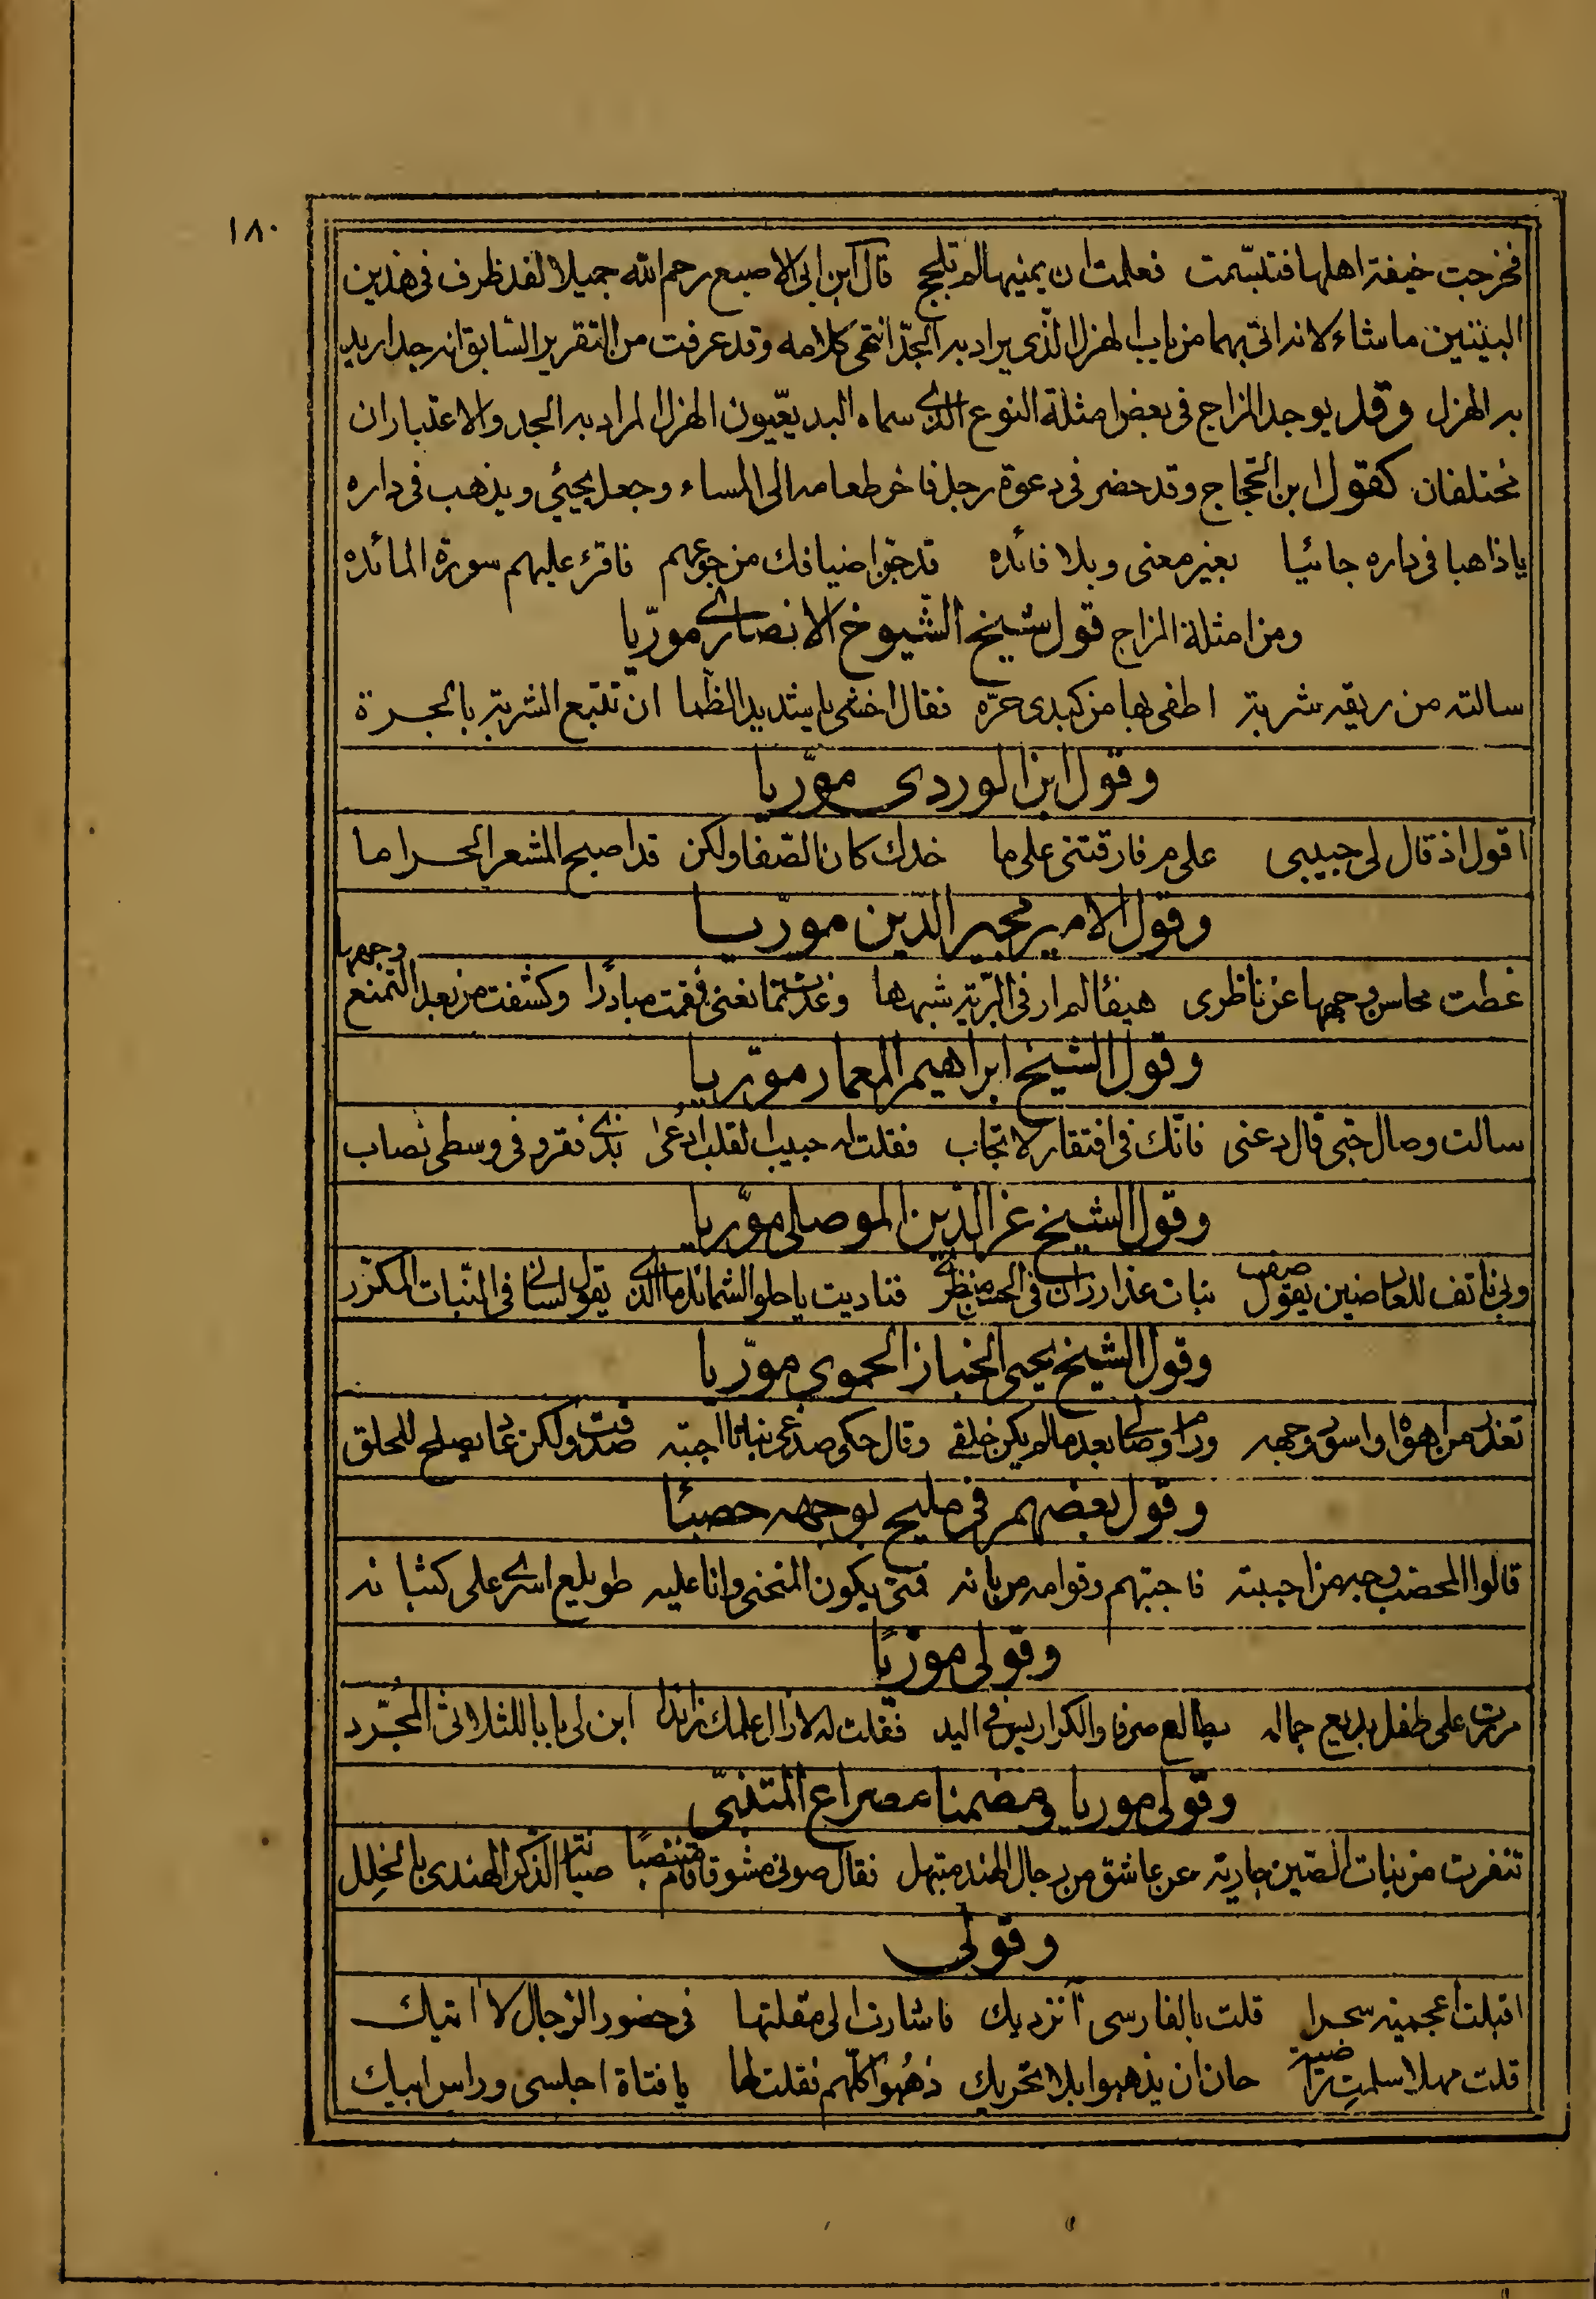 ١٨٠
فخرجت خيفة اهلها فتبسّمت فعلمت ان يمينها لم تلجج قال ابن ابی الاصبع رحم الله جميلا لقد ظرف فی هذين
البيتين ما شاء لانه اتی بهما من باب الهزل الّذی يراد به الجدّ انتهی كلامه وقد عرفت من التقرير السّابق انه جد اريد
به الهزل وقد يوجد المزاج فی بعض امثلة النوع الذی سماه البديعيّون الهزل المراد به الجد والاعتباران
مختلفان كقول ابن الحجّاج وقد حضر فی دعوة رجل فاخر طعامه الی المساء وجعل يجيئ ويذهب فی داره
يا ذاهبا فی داره جائيا بغير معنی وبلا فائده قد جنّ اضيافك من جوعهم فاقرء عليهم سورة المائده
ومن امثلة المزاج قول شيخ الشّيوخ الانصاری مورّيا
سالته من ريقه شربة اطفی بها من كبدی حرّه فقال اخشی يا شديد الظّما ان تتبع الشربة بالجرة
وقول ابن الوردی مورّيا
اقول اذ قال لی حبيبی علی م فارقتنی علی ما خدك كان الصّفا ولكن قد اصبح المشعر الحراما
وقول الامير مجير الدّين مورّيا
غطت محاسن وجهها عن ناظری هيفا لم ار فی البريّة شبهها وغدت تمانعنی فقمت مبادرًا وكشفت من بعد التمنع وجهها
وقول الشيخ ابراهيم المعمار مورّيا
سالت وصال حبّی قال دعنی فانّك فی افتقار لا تجاب فقلت له حبيب القلب ادعی بذی فقر وفی وسطی نصاب
وقول الشيخ عز الدّين الموصلی مورّيا
نبات عذار زان فی الحسن منظری فناديت يا حلو الشمائل ما الذی يقول لسانی فی النّبات المكرّر
وقول الشيخ يحيی الخباز الحموی مورّيا
تعذر من اهواه واسودّ وجهه ورام وصالی بعد ما لم يكن خلقی وقال حكی صدغی نباتا اجبته صدقت ولكن عاد يصلح للحلق
وقول بعضهم فی مليح بوجهه حصبئا
قالوا المحصب وجه من احببته فاجبتهم وقوامه من بانه فمتی يكون المنحنی وانا عليه طويلع اسری علی كثبانه
وقولی مورّيًا
مررت علی طفل بديع جماله يطالع صرفا والكراريس فی اليد فقلت له لا زال علمك زائدا ابن لی بابا للثلاثی المجرّد
وقولی موريا ومضمنا مصراع المتنبّی
تنفرت من بنات الصّين جارية عن عاشق من رجال الهند مبتهل فقال صونی مشوقا قام منتصبًا صيانة الذكر الهندی بالخلل
وقولی
اقبلت اعجمية سحرا قلت بالفارسی آ نزديك فاشارت لی مقلتها فی حضور الرّجال لا اتيك
قلت مهلا اسلمت حان ان يذهبوا بلا تحريك ذهبوا كلّهم فقلت لها يا فتاة اجلسی وراس ابيك